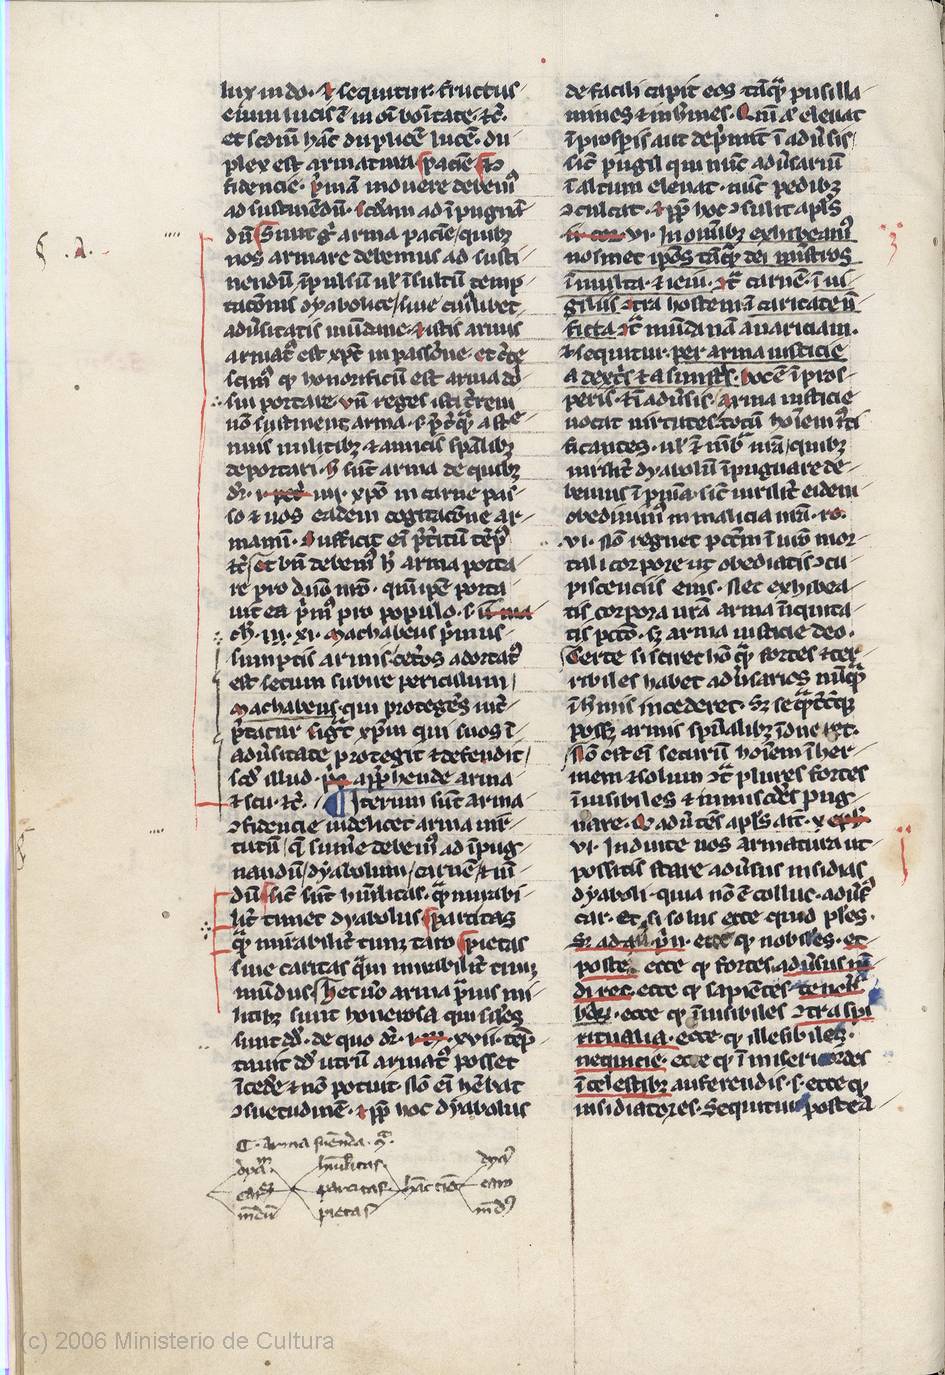 lux in dno. et sequitur fructus
enim lucis ē in oī bonitate. etc̄.
et scdm hāc duplicē lucē. du
plex est armatura paciē
fidencie. p̄mā mouere debem9
ad sustinēdū. scdam ad īpugnā
dū Sunt g̊ arma pacīe quibz
nos armare debemus ad susti
nendū īpulsū ul' īsultū temp
tacōnis dyabolice siue cuiuslibet
adūsitatis mūdane. et istis armis
armat9 est xp̄c in passione. et
scim9 qp honorificū est arma dn̄i
sui portare vn̄ reges
nō sustinent arma. s; a
militibz et amicis spālibz
deportari. h̄ sūt arma de quibz
dr̄. iiij. xpō in carne pas
so et uos eadem cogitacōne ar
mamī. Sufficit eī p̄t̄itū tp̄s
etc̄ Et bn̄ debem9 h̄ arma porta
re pro dno nr̄o. qm̄ ipē porta
uit ea p̄m9 pro populo. s.
ch. iij. xi. Machabeus p̄mus
sumptis armis. cet̄os adortat9
est secum subire periculum
Machabeus. qui protegēs
p̄tatur sigt̄ xp̄m qui suos ī
adūsitate protegit et defendit
scd' illud. app̄hende arma
et scū. etc̄. ¶ Iterum sūt arma
ꝯfidencie uidelicet arma uir
tutū q̄ sum'e debem9 ad īpug
nandū dyabolum carnē et mū
dū sic sūt hūilitas. quā mirabi
lit' timet dyabolus parcitas
quā mirabilit' timz caro pietas
siue caritas quā mirabilit' timz
mūdus Hec arma p̄ius mi
litibz sunt honerosa qui siles
sunt dd'. de quo dr̄. xvii. tēp
tauit dd' utrū armat9 posset
īcede et nō potuit. nō eī hēbat
ꝯsuetudinē. et pp̄ hoc dyabolus
de facili capit eos tāq̄ pusilla
nimes et inermes. Qui aut eleuat
ī prosp̄is aut dep̄mit ī adūsis
sic pugil qui nūc adūsariū
ī altum eleuat. nūc pedibz
ꝯculcat. et pp̄ hoc ꝯsulit apl's
ii cor vi. In omibz exhibeam9
nosmet ip̄os tāq̄ dei mistros
ī multa et ieiu. ꝯt̄ carnē. ī ui
giliis ꝯtra hostem. ī caritate n̄
ficta ꝯt̄ mūdanā auariciam.
et sequitur. per arma iusticie
a dext̄s et a sinist̄s. hoc ē ī pros
peris. et ī adūsis. Arma iusticie
uocat uirtutes totū hoīem iusti
ficantes. ul' ē mēb nr̄a quibz
uirilit' dyabolū īpugnare de
bemus ī p̄nīa. sic uirilit' eidem
obediuim9 in malicia nr̄a. ro.
vi. Nō regnet pcc̄m ī uro mor
tali corpore ut obediatis ꝯcu
piscenciis eius. Nec exhibea
tis corpora ur̄a arma īiquita
tis pcco. sz arma iusticie deo.
Certe si sciret hō quā fortes et ter
ribiles habet adūsarios nūq̄
īermis incederet. Sz se
possz armis spūalibz īdueret.
Nō est eī securū hoīem īher
mem et solum ꝯt̄ plures fortes
īuisibiles et inmisc̄des pug
nare. Q adūtēs apl's ait. eph.
vi. Induite uos armatura ut
possitis stare adūsus insidias
dyaboli. quia nō ē colluc. adūs
car. et. si solus ecce quod pl'es.
Sz ad p̄n. ecce qp nobiles. et
poste. ecce qp fortes. adūsus mū
di rec. ecce qp sapientes te neb
har. ecce qp īuisibiles ꝯtra spi
ritualia. ecce qp illesibiles.
nequicie. ecce qp īmisericordes
ī celestibz auferendis. s. ecce qp
insidiatores. Sequitur postea
C. arma sumenda. ꝯtra.
dya'm
carnē
mūdū
hūilitas
parcitas
pietas
dya'
caro
mūd9
(c) 2006 Ministerio de Cultura